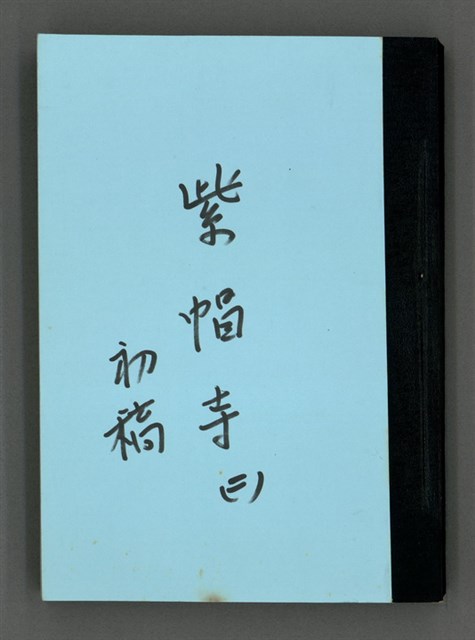 紫帽寺(二)
初稿